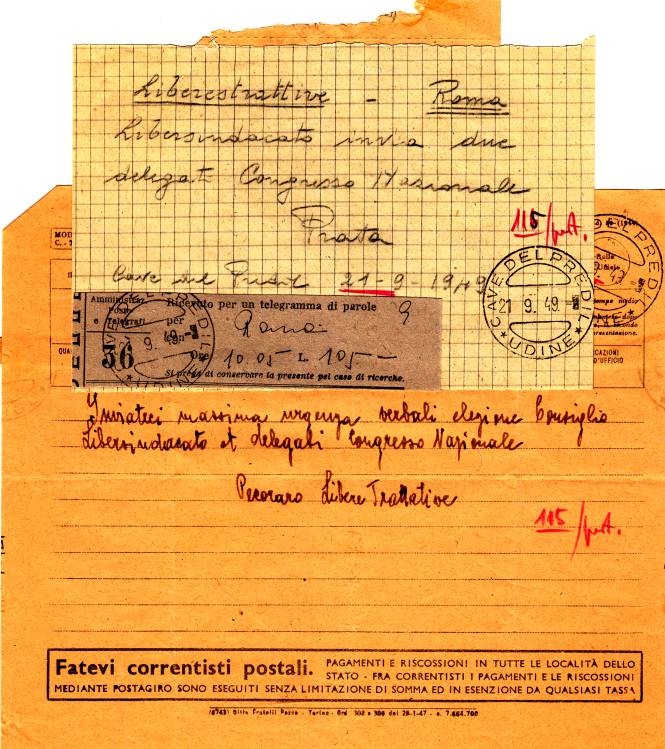 Liberestrattive - Roma
Libersindacato invia due
delegati Congresso Nazionale
Prata
115/
Cave del Predil 21-9-1949
CAVE DEL PREDIL
21 9. 49.
* UDINE *
Poste
e Telegrafi
Ricevuto per un telegramma di parole 9
per Roma
56
Ore 10.05 L. 105-
Si prega di conservare la presente pel caso di ricerche.
MOD
C. - T
QUA
CAVE DEL PREDIL
D'UFFICIO
Inviateci massima urgenza verbali elezione Consiglio
Libersindacato et delegati Congresso Nazionale
Pecoraro Libere Trattative
115/
Fatevi correntisti postali. PAGAMENTI E RISCOSSIONI IN TUTTE LE LOCALITÀ DELLO
STATO - FRA CORRENTISTI I PAGAMENTI E LE RISCOSSIONI
MEDIANTE POSTAGIRO SONO ESEGUITI SENZA LIMITAZIONE DI SOMMA ED IN ESENZIONE DA QUALSIASI TASSA
(6743) Ditta Fratelli Pozzo - Torino - Ord 302 e 306 del 28-1-47 - c. 7.664.700